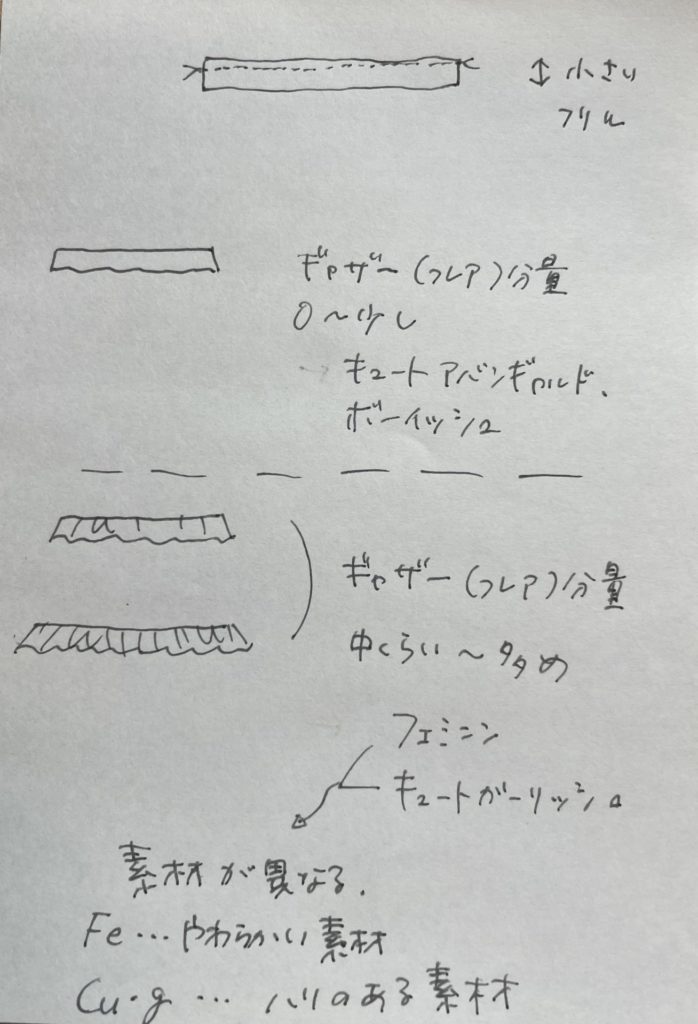 小さい
フリル
ギャザー(フレア)分量
0〜少し
キュートアバンギャルド、
ボーイッシュ
ギャザー(フレア)分量
中くらい〜多め
フェミニン
キュートガーリッシュ
素材が異なる.
Fe…やわらかい素材
Cu・g…ハリのある素材